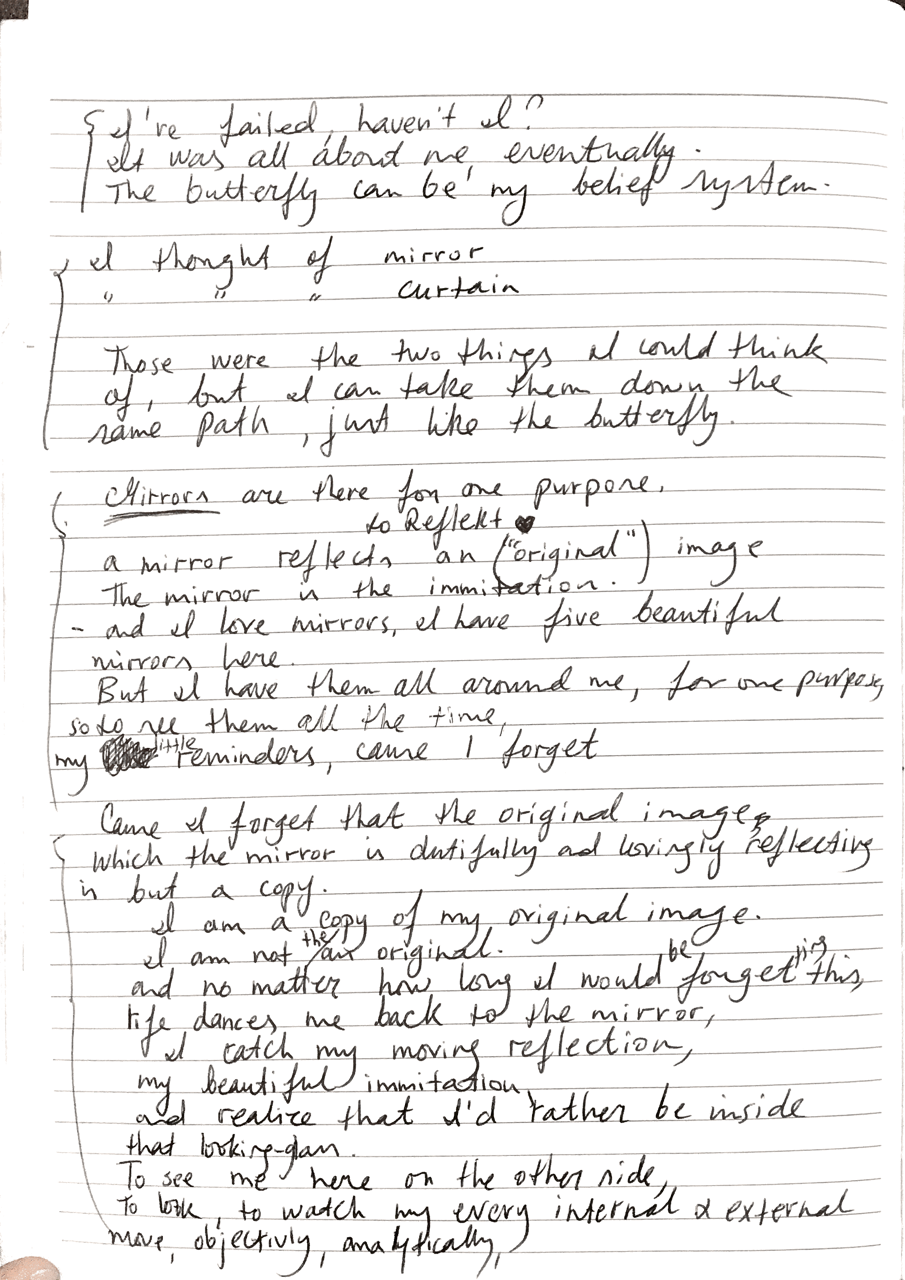 I've failed, haven't I?
It was all about me, eventually.
The butterfly can be my belief system.
I thought of mirror
" " " curtain
Those were the two things I could think
of, but I can take them down the
same path, just like the butterfly.
Mirrors are there for one purpose,
to Reflekt ♥
a mirror reflects an ("original") image
The mirror is the immitation.
- and I love mirrors, I have five beautiful
mirrors here.
But I have them all around me, for one purpose,
so to see them all the time,
my little reminders, cause I forget
Cause I forget that the original image,
which the mirror is dutifully and lovingly reflecting
is but a copy.
I am a copy of my original image.
I am not the/an original.
and no matter how long I would be forgetting this,
life dances me back to the mirror,
I catch my moving reflection,
my beautiful immitation,
and realize that I'd rather be inside
that looking-glass.
To see me here on the other side,
To look, to watch my every internal & external
move, objectivly, analytically,